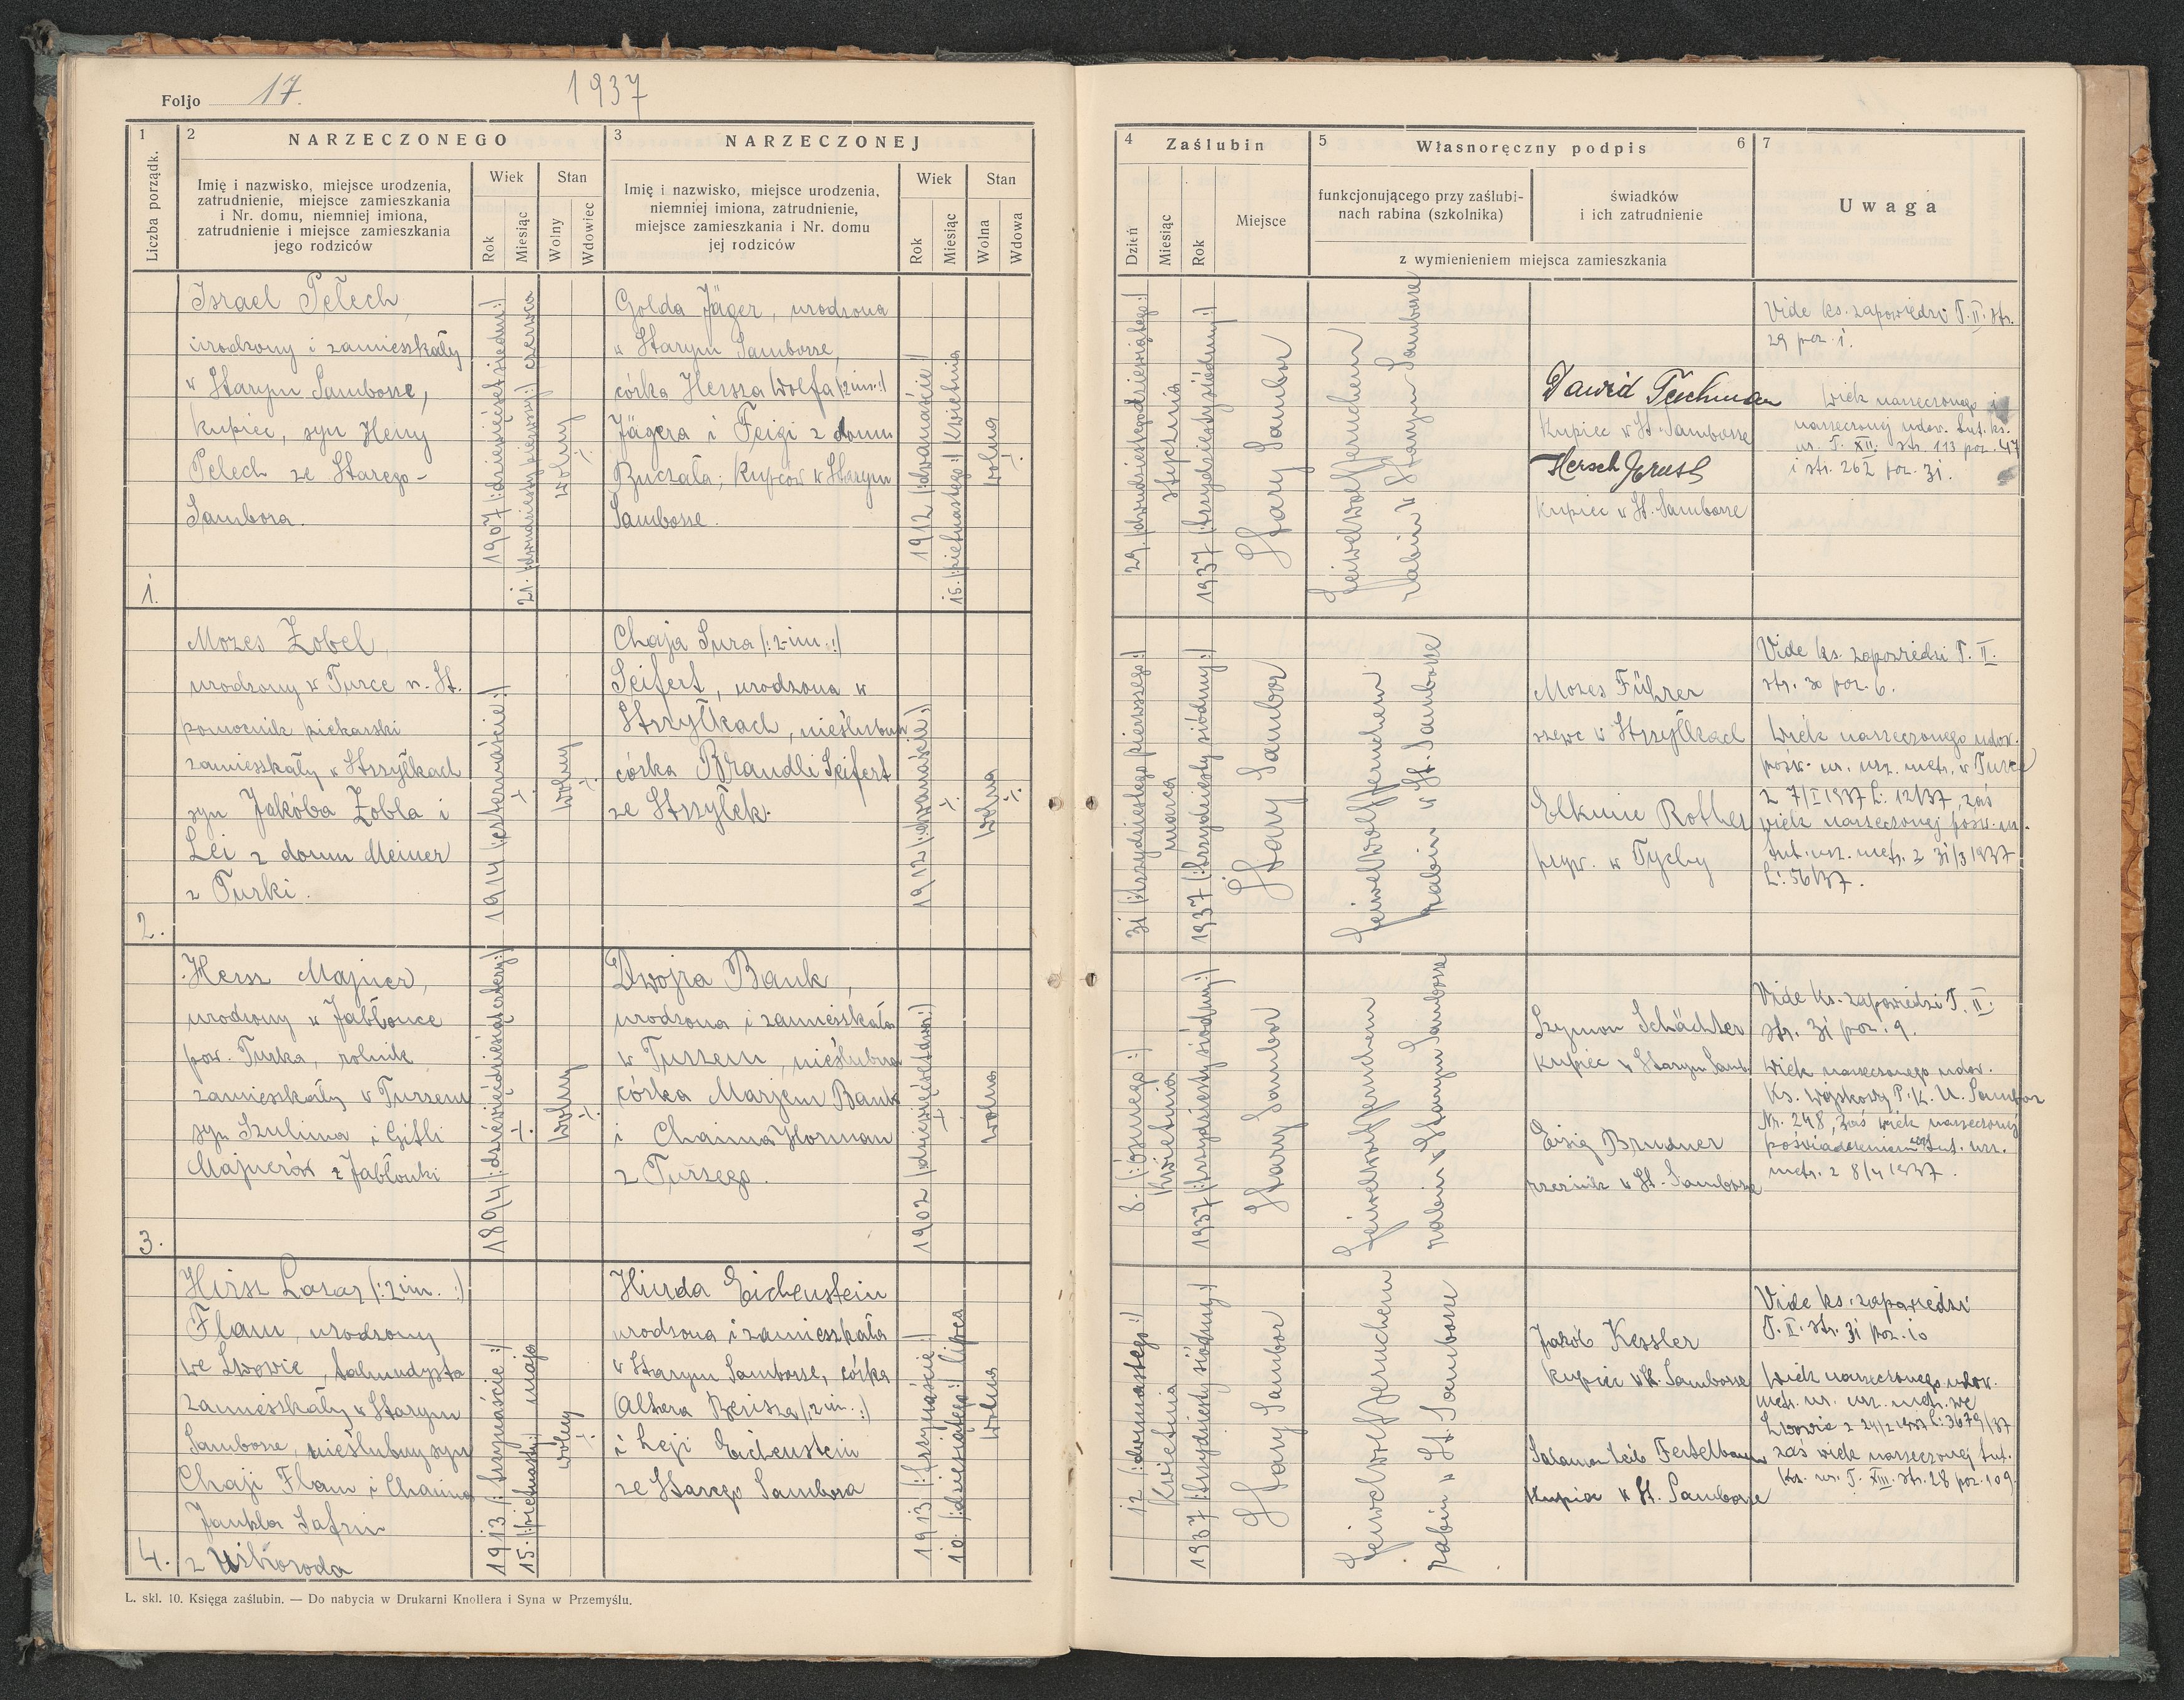 Foljo 17.
1937
1
2 NARZECZONEGO
3 NARZECZONEJ
Liczba porządk.
Imię i nazwisko, miejsce urodzenia,
zatrudnienie, miejsce zamieszkania
i Nr. domu, niemniej imiona,
zatrudnienie i miejsce zamieszkania
jego rodziców
Wiek
Stan
Rok
Miesiąc
Wolny
Wdowiec
Imię i nazwisko, miejsce urodzenia,
niemniej imiona, zatrudnienie,
miejsce zamieszkania i Nr. domu
jej rodziców
Wiek
Stan
Rok
Miesiąc
Wolna
Wdowa
4 Zaślubin
5 Własnoręczny podpis 6
7
Dzień
Miesiąc
Rok
Miejsce
funkcjonującego przy zaślubi-
nach rabina (szkolnika)
świadków
i ich zatrudnienie
z wymienieniem miejsca zamieszkania
Uwaga
1.
Israel Pełech,
urodzony i zamieszkały
w Starym Samborze,
kupiec, syn Heny
Pelech ze Starego-
Sambora.
1907 /:dziewięćset siedem:/
21. /:dwudziesty pierwszy:/ czerwca
wolny
Golda Jäger, urodzona
w Starym Samborze,
córka Hersza Wolfa /:2 im:/
Jägera i Feigi z domu
Buczała; kupców w Starym
Samborze.
1912 /:dwanaście:/
15. /:piętnastego:/ kwietnia
wolna
29. /:dwudziestego dziewiątego:/
stycznia
1937 /:trzydziesty siódmy:/
Stary Sambor
Feiwel Wolf Jeruchem
rabin w Starym Samborze
Dawid Tuchman
kupiec w St. Samborze
Hersch Jerust
kupiec w St. Samborze
Vide ks. zapowiedzi T. II. str.
29 poz. 1.
Wiek narzeczonego i
narzeczonej udow. tut. ks.
ur. T. XII. str. 113 poz. 47
i str. 262 poz. 31.
2.
Mozes Zobel,
urodzony w Turce n. St.
pomocnik piekarski
zamieszkały w Strzyłkach
syn Jakóba Zobla i
Lei z domu Meiner
z Turki.
1914 /:czternaście:/
wolny
Chaja Sura /:2-im.:/
Seifert, urodzona w
Strzyłkach, nieślubna
córka Brandli Seifert
ze Strzyłek.
1912 /:dwanaście:/
wolna
31 /:trzydziestego pierwszego:/
marca
1937 /:trzydziesty siódmy:/
Stary Sambor
Feiwel Wolf Jeruchem
rabin w St. Samborze
Mozes Führer
szewc w Strzyłkach
Elkune Rother
pryw. w Tychy
Vide ks. zapowiedzi T. II.
str. 30 poz. 6.
Wiek narzeczonego udow.
pośw. ur. urz. metr. w Turce
z 7/I 1937 L: 12/37, zaś
wiek narzeczonej pośw. ur.
tut. urz. metr. z 31/3 1937
L: 56/37.
3.
Hersz Majner,
urodzony w Jabłonce
pow. Turka, rolnik
zamieszkały w Turzem
syn Szulima i Gitli
Majnerów z Jabłonki
1894 /:dziewięćdziesiąt cztery:/
wolny
Dwojra Bank,
urodzona i zamieszkała
w Turzem, nieślubna
córka Marjem Bank
i Chaima Horman
z Turzego.
1902 /:dziewięćset dwa:/
wolna
8. /:ósmego:/
kwietnia
1937 /:trzydziesty siódmy:/
Stary Sambor
Feiwel Wolf Jeruchem
rabin w Starym Samborze
Szymon Schächter
kupiec w Starym Samb.
Eisig Brudner
rzeźnik w St. Samborze
Vide ks. zapowiedzi T. II.
str. 31 poz. 9.
Wiek narzeczonego udow.
ks. wojskową P.K.U. Sambor
Nr. 248, zaś wiek narzeczonej
poświadczeniem tut. urz.
metr. z 8/4 1937.
4.
Hirsz Lazar /:2 im.:/
Flam, urodzony
we Lwowie, talmudysta
zamieszkały w Starym
Samborze, nieślubny syn
Chaji Flam i Chaima
Jankla Safrin
z Użhoroda
1913 /:trzynaście:/
15. /:piętnasty:/ maja
wolny
Hinda Eichenstein
urodzona i zamieszkała
w Starym Samborze, córka
Altera Berisza /:2 im.:/
i Leji Eichenstein
ze Starego Sambora
1913 /:trzynaście:/
10. /:dziesiątego:/ lipca
wolna
12 /:dwunastego:/
kwietnia
1937 /:trzydziesty siódmy:/
Stary Sambor
Feiwel Wolf Jeruchem
rabin w St. Samborze
Jakób Kessler
kupiec w St. Samborze
Salamon Leib Feitelbaum
kupiec w St. Samborze
Vide ks. zapowiedzi
T. II. str. 31 poz. 10
Wiek narzeczonego udow.
metr. ur. urz. metr. we
Lwowie z 24/2 1937 L: 3679/37
zaś wiek narzeczonej tut.
ks. ur. T. XIII. str. 28 poz. 109.
L. skl. 10. Księga zaślubin. — Do nabycia w Drukarni Knollera i Syna w Przemyślu.